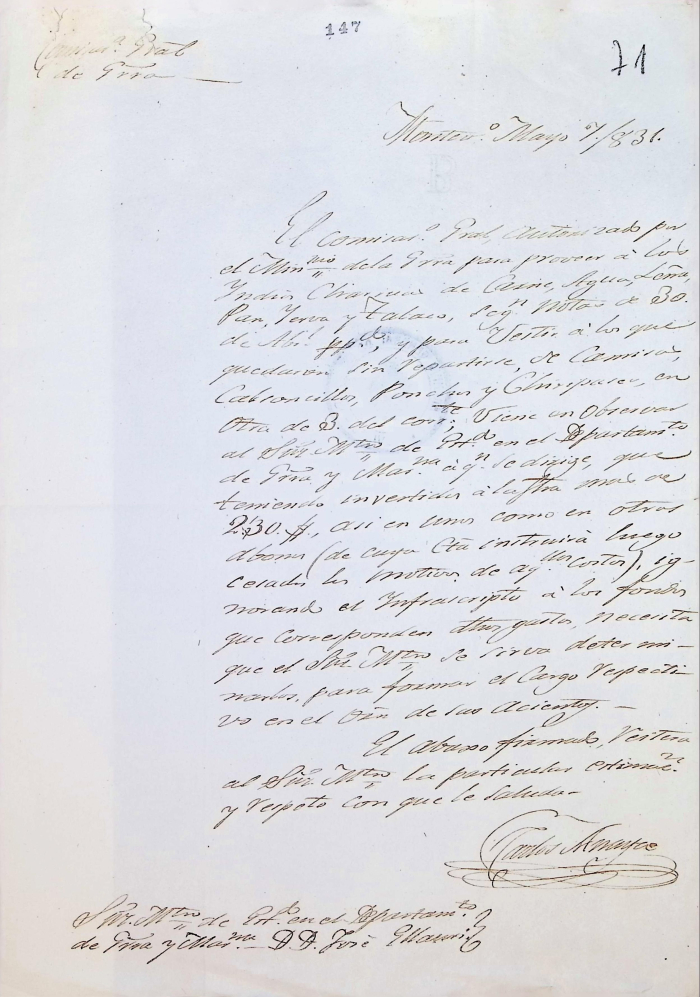 147
71
Comisar.ª Gral
de Grra
Montev.º Mayo 7/831.
El Comisar.º Gral, autorizado por
el Min.rio de la Grra para proveer à los
Indios Charruas de Carne, Agua, Leña,
Pan, Yerva y Tabaco, seg.n notas de 30.
de Abl. pp.do, y para Vestir à los que
quedaran sin repartirse, de Camisas,
Calsoncillos, Ponchos y Chiripases, en
otra de 3. del corr.te, Viene en Observar
al Señr. Mtro de Est.do en el Departam.to
de Grra y Mar.na à q.n se dirige, que
teniendo invertidos à la fha mas de
230. $, asi en unos como en otros
abonos (de cuya Cta instruirà luego
cesados los motivos de aq.llos costos), ig-
norando el Infrascripto à los fondos
que corresponden dhos gastos, necesita
que el Señr. Mtro se sirva determi-
narlos, para formar el Cargo respecti-
vo en el Orn. de sus Acientos. —
El abaxo firmado, reitera
al Señr. Mtro la particular estimac.n
y respeto con que le saluda—
Carlos Anaya
Señr. Mtro de Est.do en el Departam.to
de Grra y Mar.na D.D. José Ellauri